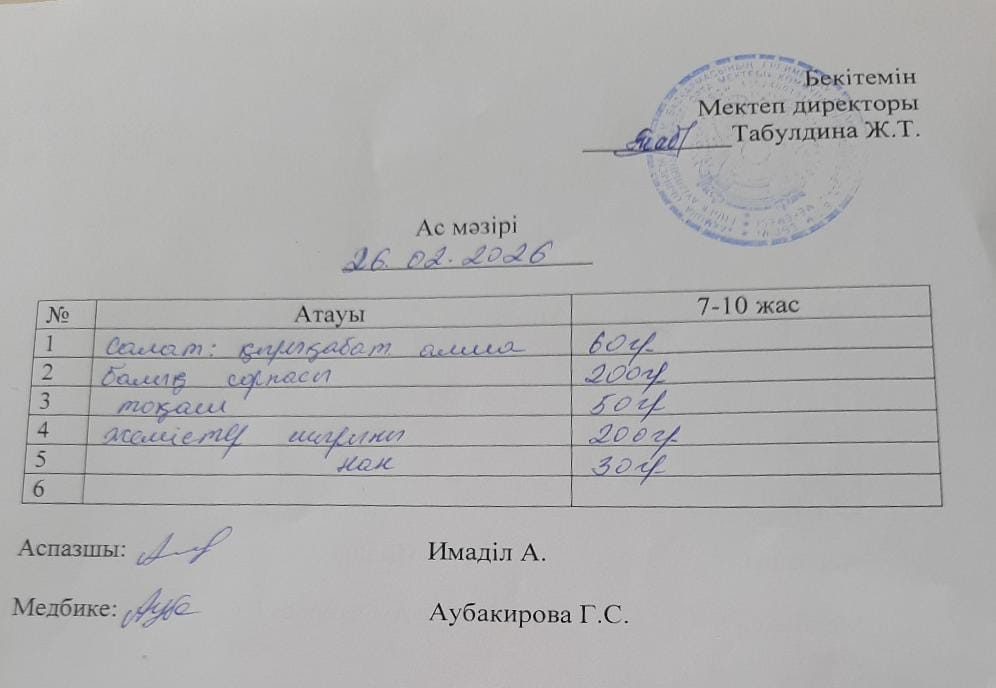 Бекітемін
Мектеп директоры
Табулдина Ж.Т.
Ас мәзірі
26.02.2026
№ Атауы 7-10 жас
1 Салат: қырыққабат алма 60гр
2 балық сорпасы 200гр
3 тоқаш 50гр
4 жемістер шырыны 200гр
5 нан 30гр
6
Аспазшы: Имаділ А.
Медбике: Аубакирова Г.С.